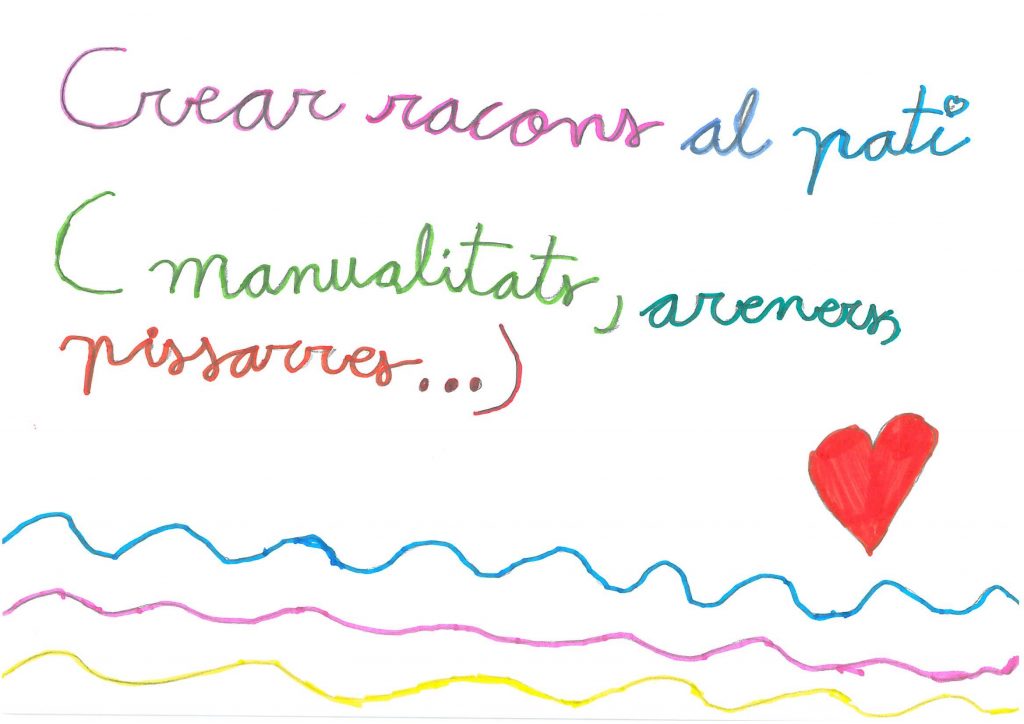 Crear racons al pati
(manualitats, areners,
pissarres...)